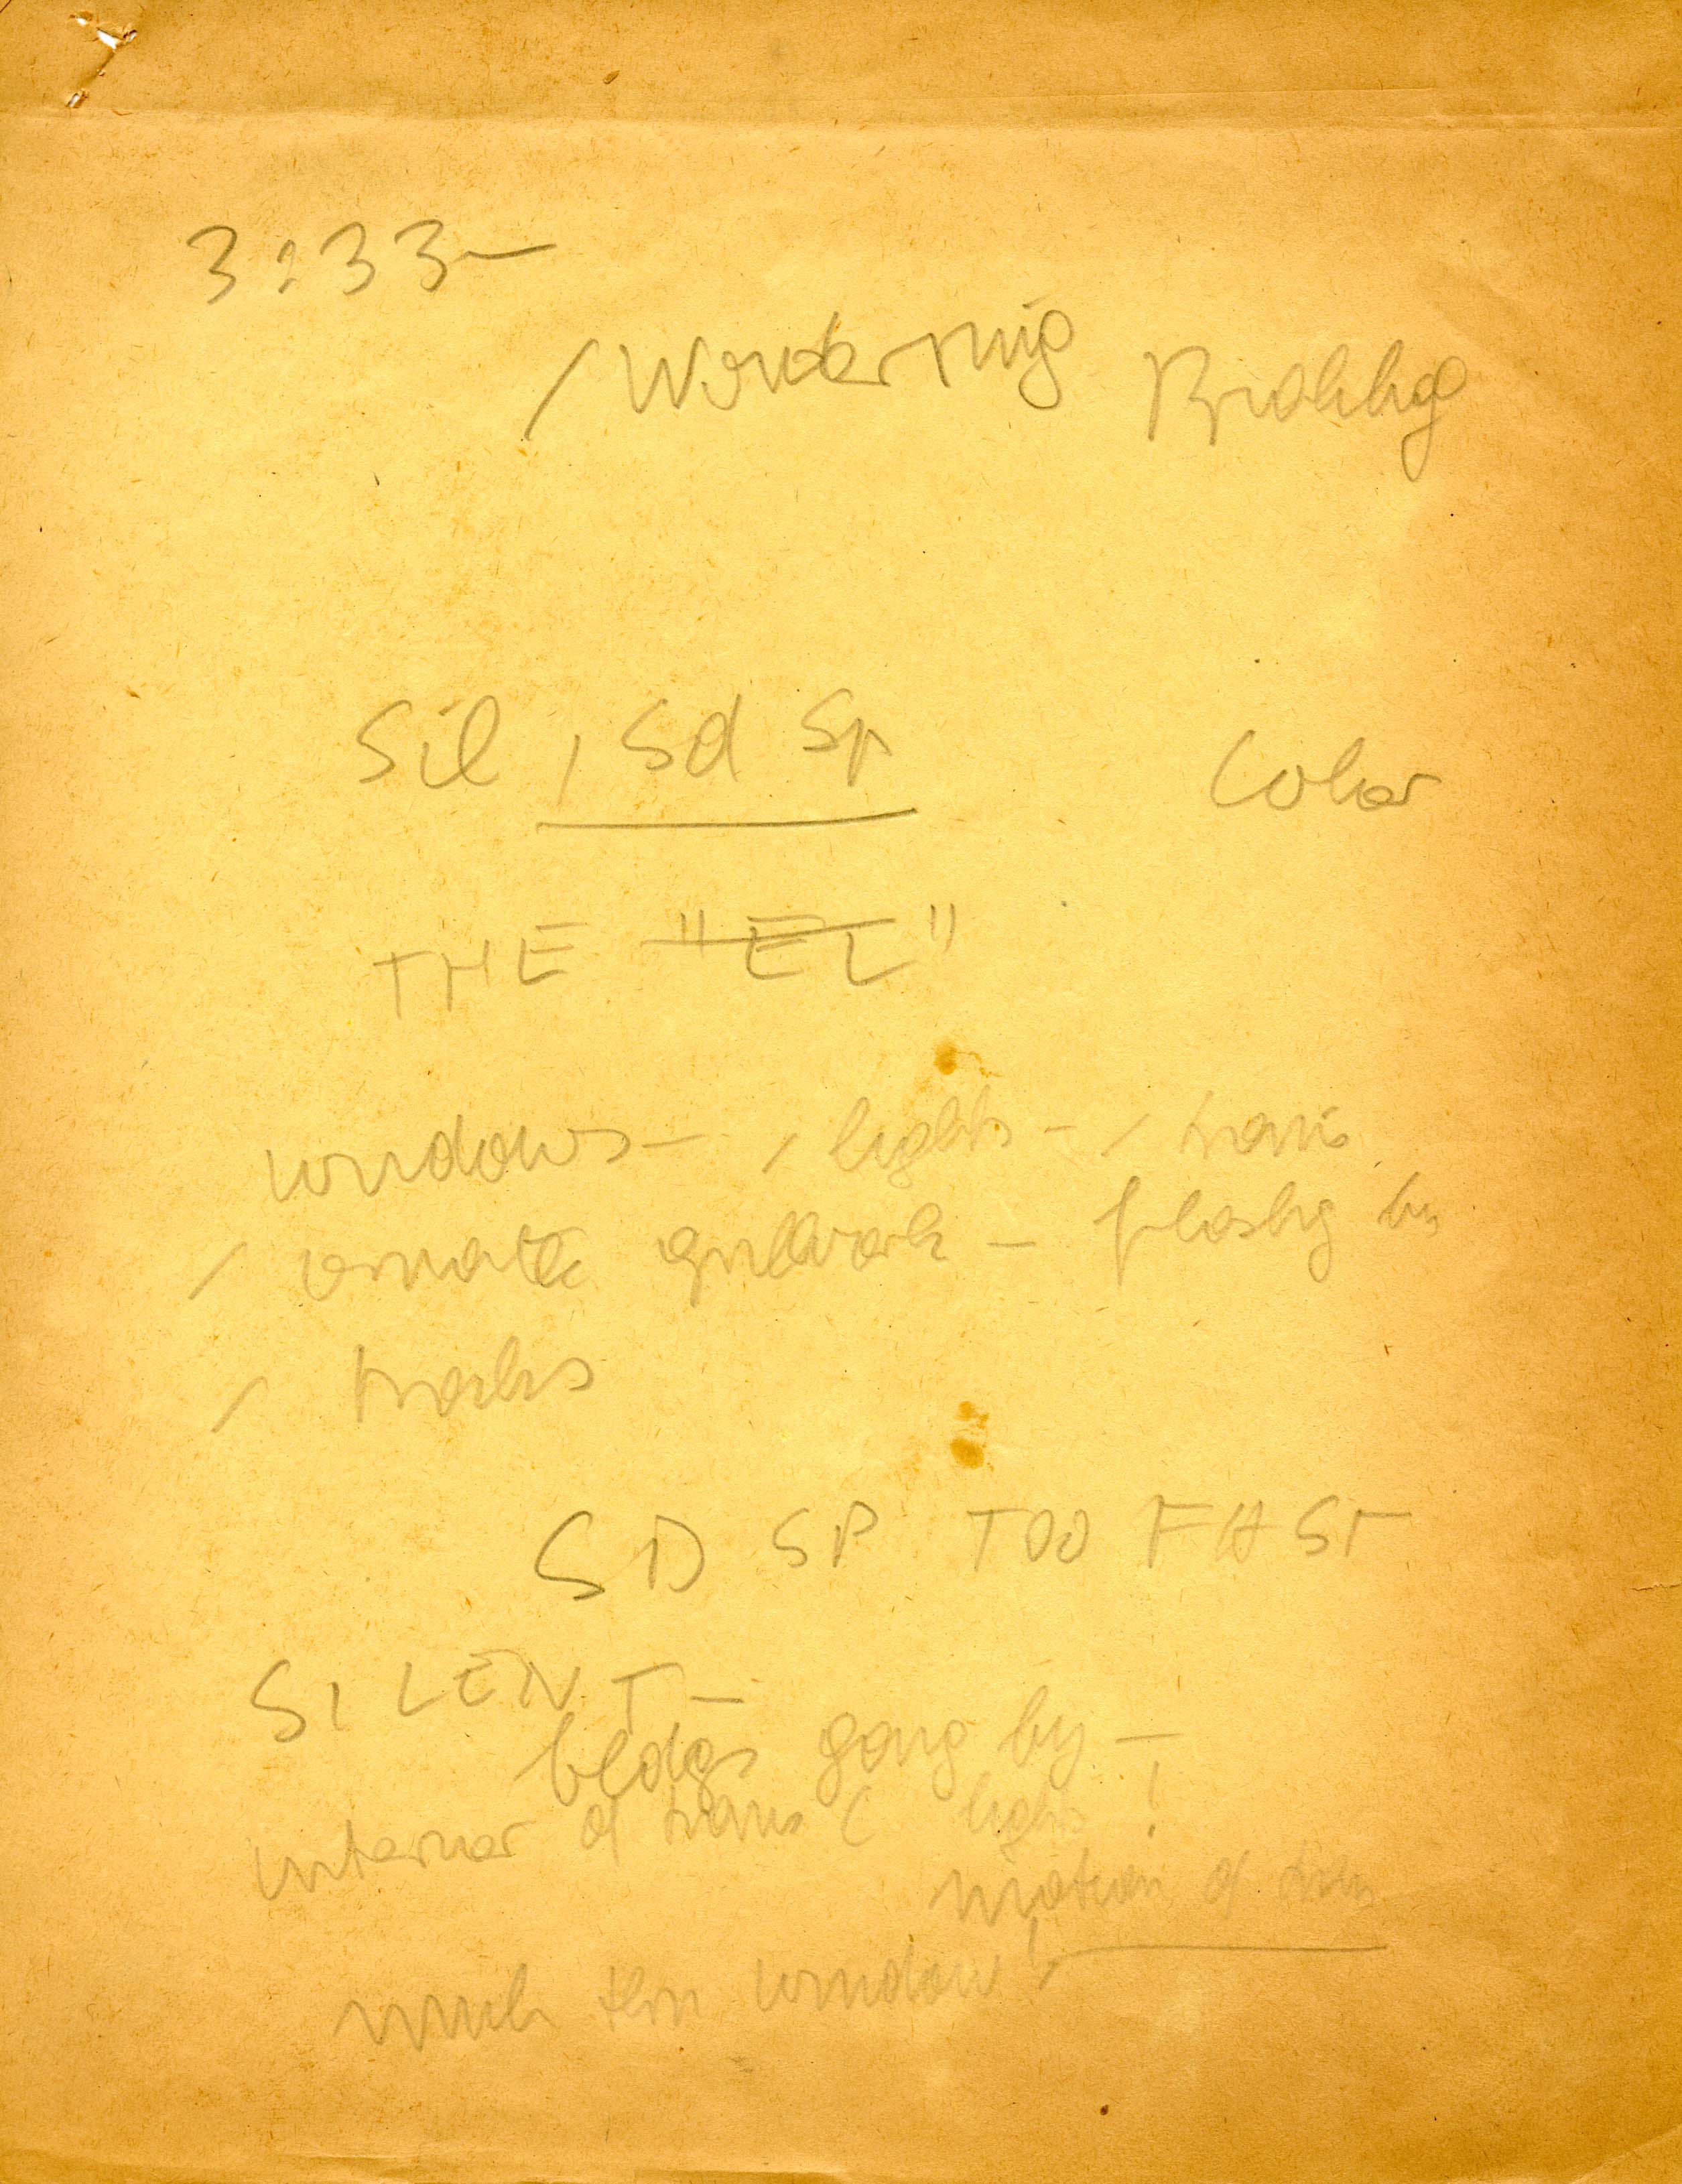 3:33—
/ Wonder Ring Brakhage
Sil, Sd Sp Color
THE "EL"
windows — / lights — / trains
/ ornate grillwork — flashg by
/ tracks
SD SP TOO FAST
SILENT —
bldgs going by —
interior of trains ( lights !
motion of train
much thru window !